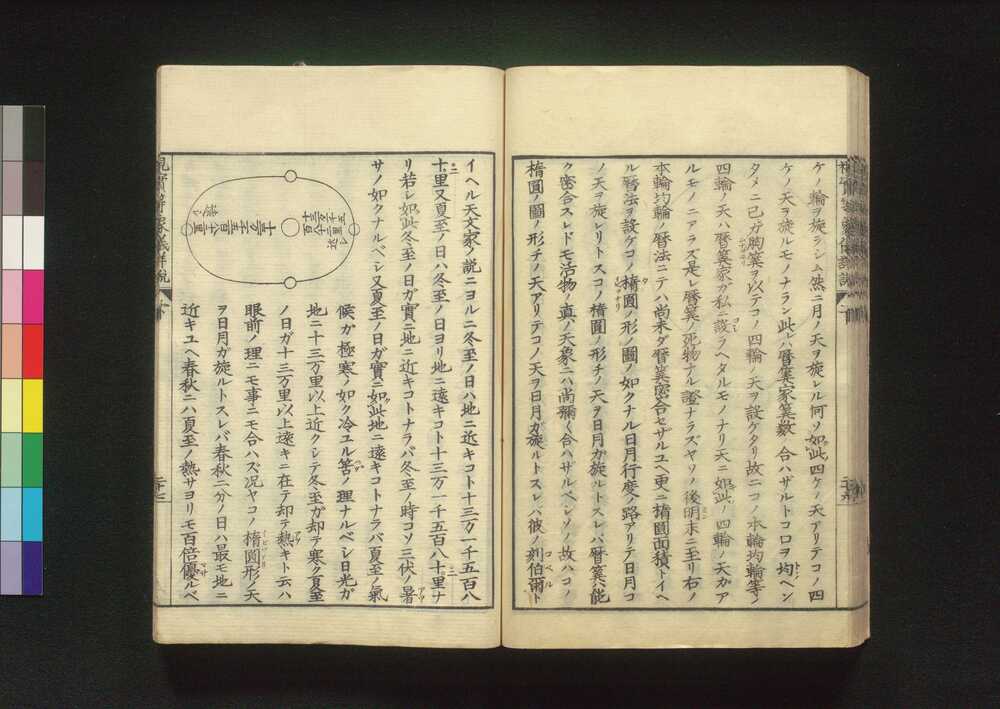 ケノ輪ヲ旋ラシム然ニ二月ノ天ヲ旋レル何ソ如此四ケノ天アリテコノ四
ケノ天ヲ旋ルモノナラン此レハ暦算家算數ノ合ハザルトコロヲ均ヘン
タメニ己カ胸算ヲ以テコノ四輪ノ天ヲ設ケタリ故ニコノ本輪均輪等ノ
四輪ノ天ハ暦算家ガ私ニ設ラヘタルモノナリ天ニ如此ノ四輪ノ天カア
ルモノニアラズ是レ暦算ノ死物ナル證ナラズヤソノ後明末ニ至リ右ノ
本輪均輪ノ暦法ニテハ尚未ダ暦算密合セザルユヘ更ニ楕圓面積トイヘ
ル暦法ヲ設ケコノ楕圓ノ形ノ圖ノ如クナル日月行度ノ路アリテ日月コ
ノ天ヲ旋レリトスコノ楕圓ノ形チノ天ヲ日月ガ旋ルトスレハ暦算ハ能
ク密合スレドモ活物ノ真ノ天象ニハ尚禰〱合ハザルベシソノ故ハコノ
楕圓ノ圖ノ形チノ天アリテコノ天ヲ日月ガ旋ルトスレバ彼ノ刻伯爾ト
イヘル天文家ノ說ニヨルニ冬至ノ日ハ地ニ近キコト十三万一千五百八
十里又夏至ノ日ハ冬至ノ日ヨリ地ニ遠キコト十三万一千五百八十里ナ
リ若シ如此冬至ノ日ガ實ニ地ニ近キコトナラバ冬至ノ時コソ三伏ノ暑
サノ如クナルベシ又夏至ノ日ガ實ニ如此地ニ遠キコトナラバ夏至ノ氣
候カ極寒ノ如ク冷ユル筈ノ理ナルベシ日光ガ
地ニ十三万里以上近クシテ冬至ガ却テ寒ク夏至
ノ日ガ十三万里以上遠キニ在テ却テ熱キト云ハ
眼前ノ理ニモ事ニモ合ハズ况ヤコノ楕圓形ノ天
ヲ日月ガ旋ルトスレバ春秋二分ノ日ハ最モ地ニ
近キユヘ春秋ニハ夏至ノ熱サヨリモ百倍優ルベ